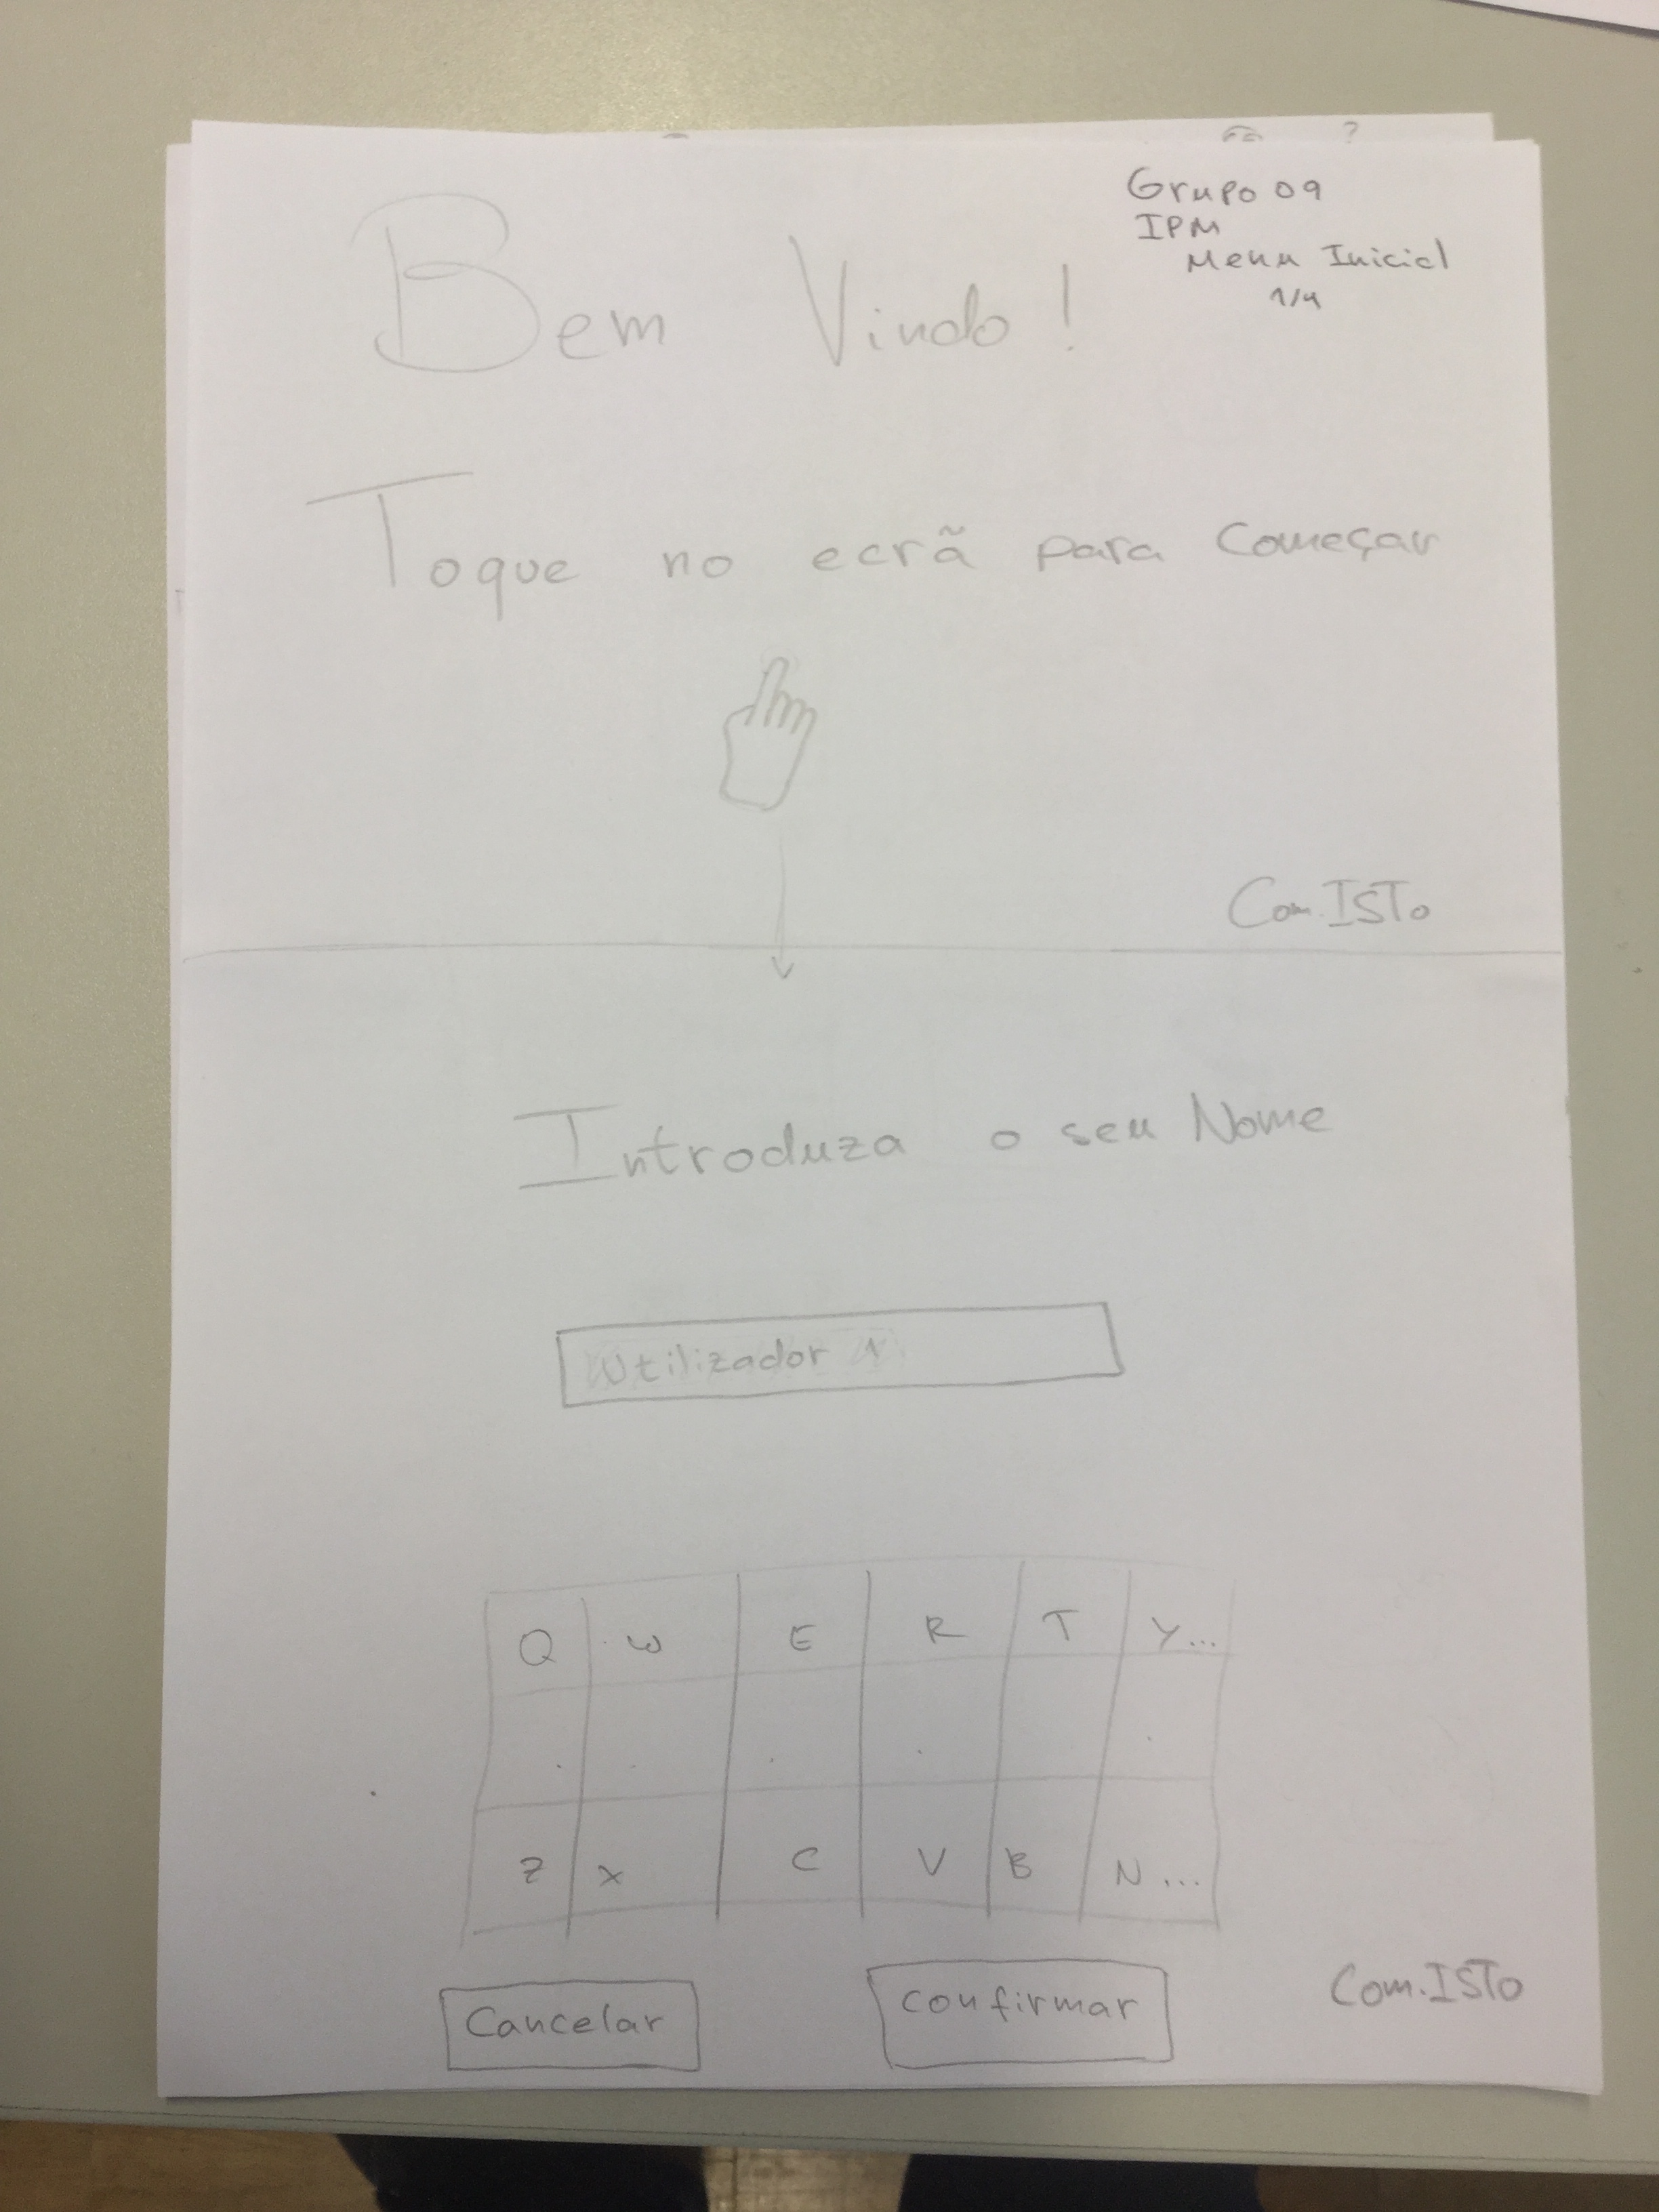 Grupo 09
IPM
Menu Inicial
1/4
Bem Vindo!
Toque no ecrã para Começar
Com.ISTo
Introduza o seu Nome
Utilizador 1
Q W E R T Y...
Z X C V B N...
Cancelar confirmar
Com.ISTo